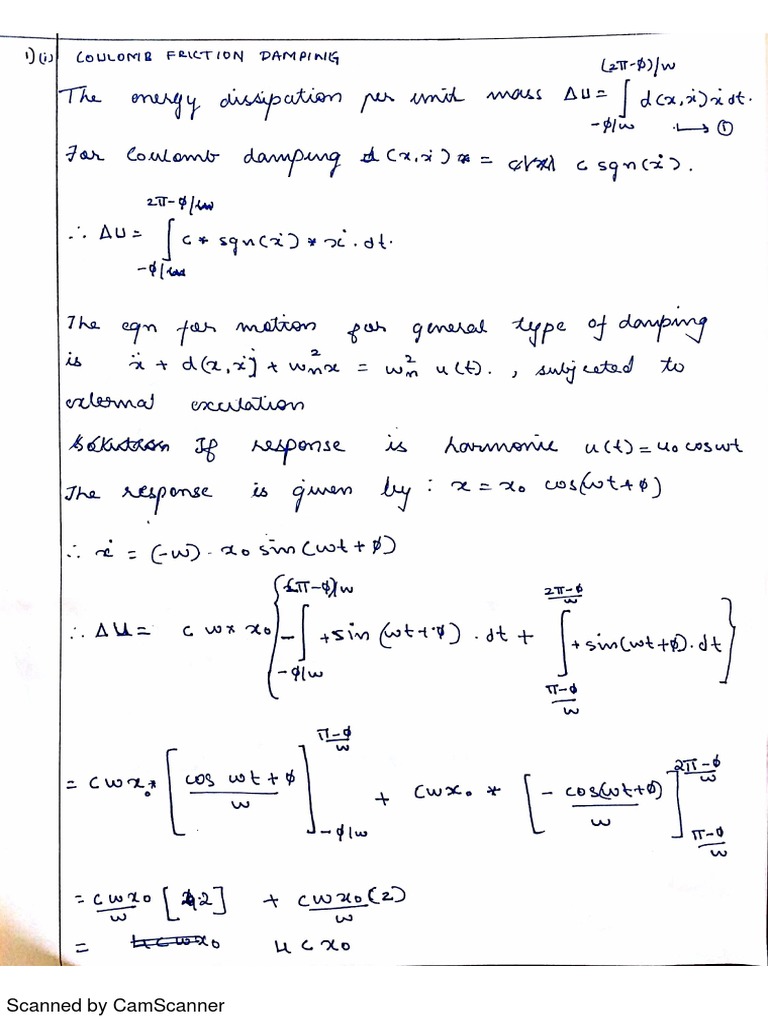 1)(i) COULOMB FRICTION DAMPING
The energy dissipation per unit mass ΔU = ∫_{-φ/w}^{(2π-φ)/w} d(x,ẋ)ẋ dt. → ①
For Coulomb damping d(x,ẋ) = c sgn(ẋ).
∴ ΔU = ∫_{-φ/w}^{2π-φ/w} c * sgn(ẋ) * ẋ . dt.
The eqn for motion for general type of damping
is ẍ + d(x,ẋ) + w_n² x = w_n² u(t). , subjected to
external excitation
If response is harmonic u(t) = u₀ cos wt
The response is given by : x = x₀ cos(wt + φ)
∴ ẋ = (-w) . x₀ sin(wt + φ)
∴ ΔU = c w x x₀ { - ∫_{-φ/w}^{(π-φ)/w} + sin(wt + φ) . dt + ∫_{(π-φ)/w}^{(2π-φ)/w} + sin(wt + φ) . dt }
= c w x₀ * [ cos wt + φ / w ]_{-φ/w}^{(π-φ)/w} + c w x₀ * [ - cos(wt + φ) / w ]_{(π-φ)/w}^{(2π-φ)/w}
= c w x₀ / w [2] + c w x₀ / w (2)
= 4 c x₀
Scanned by CamScanner